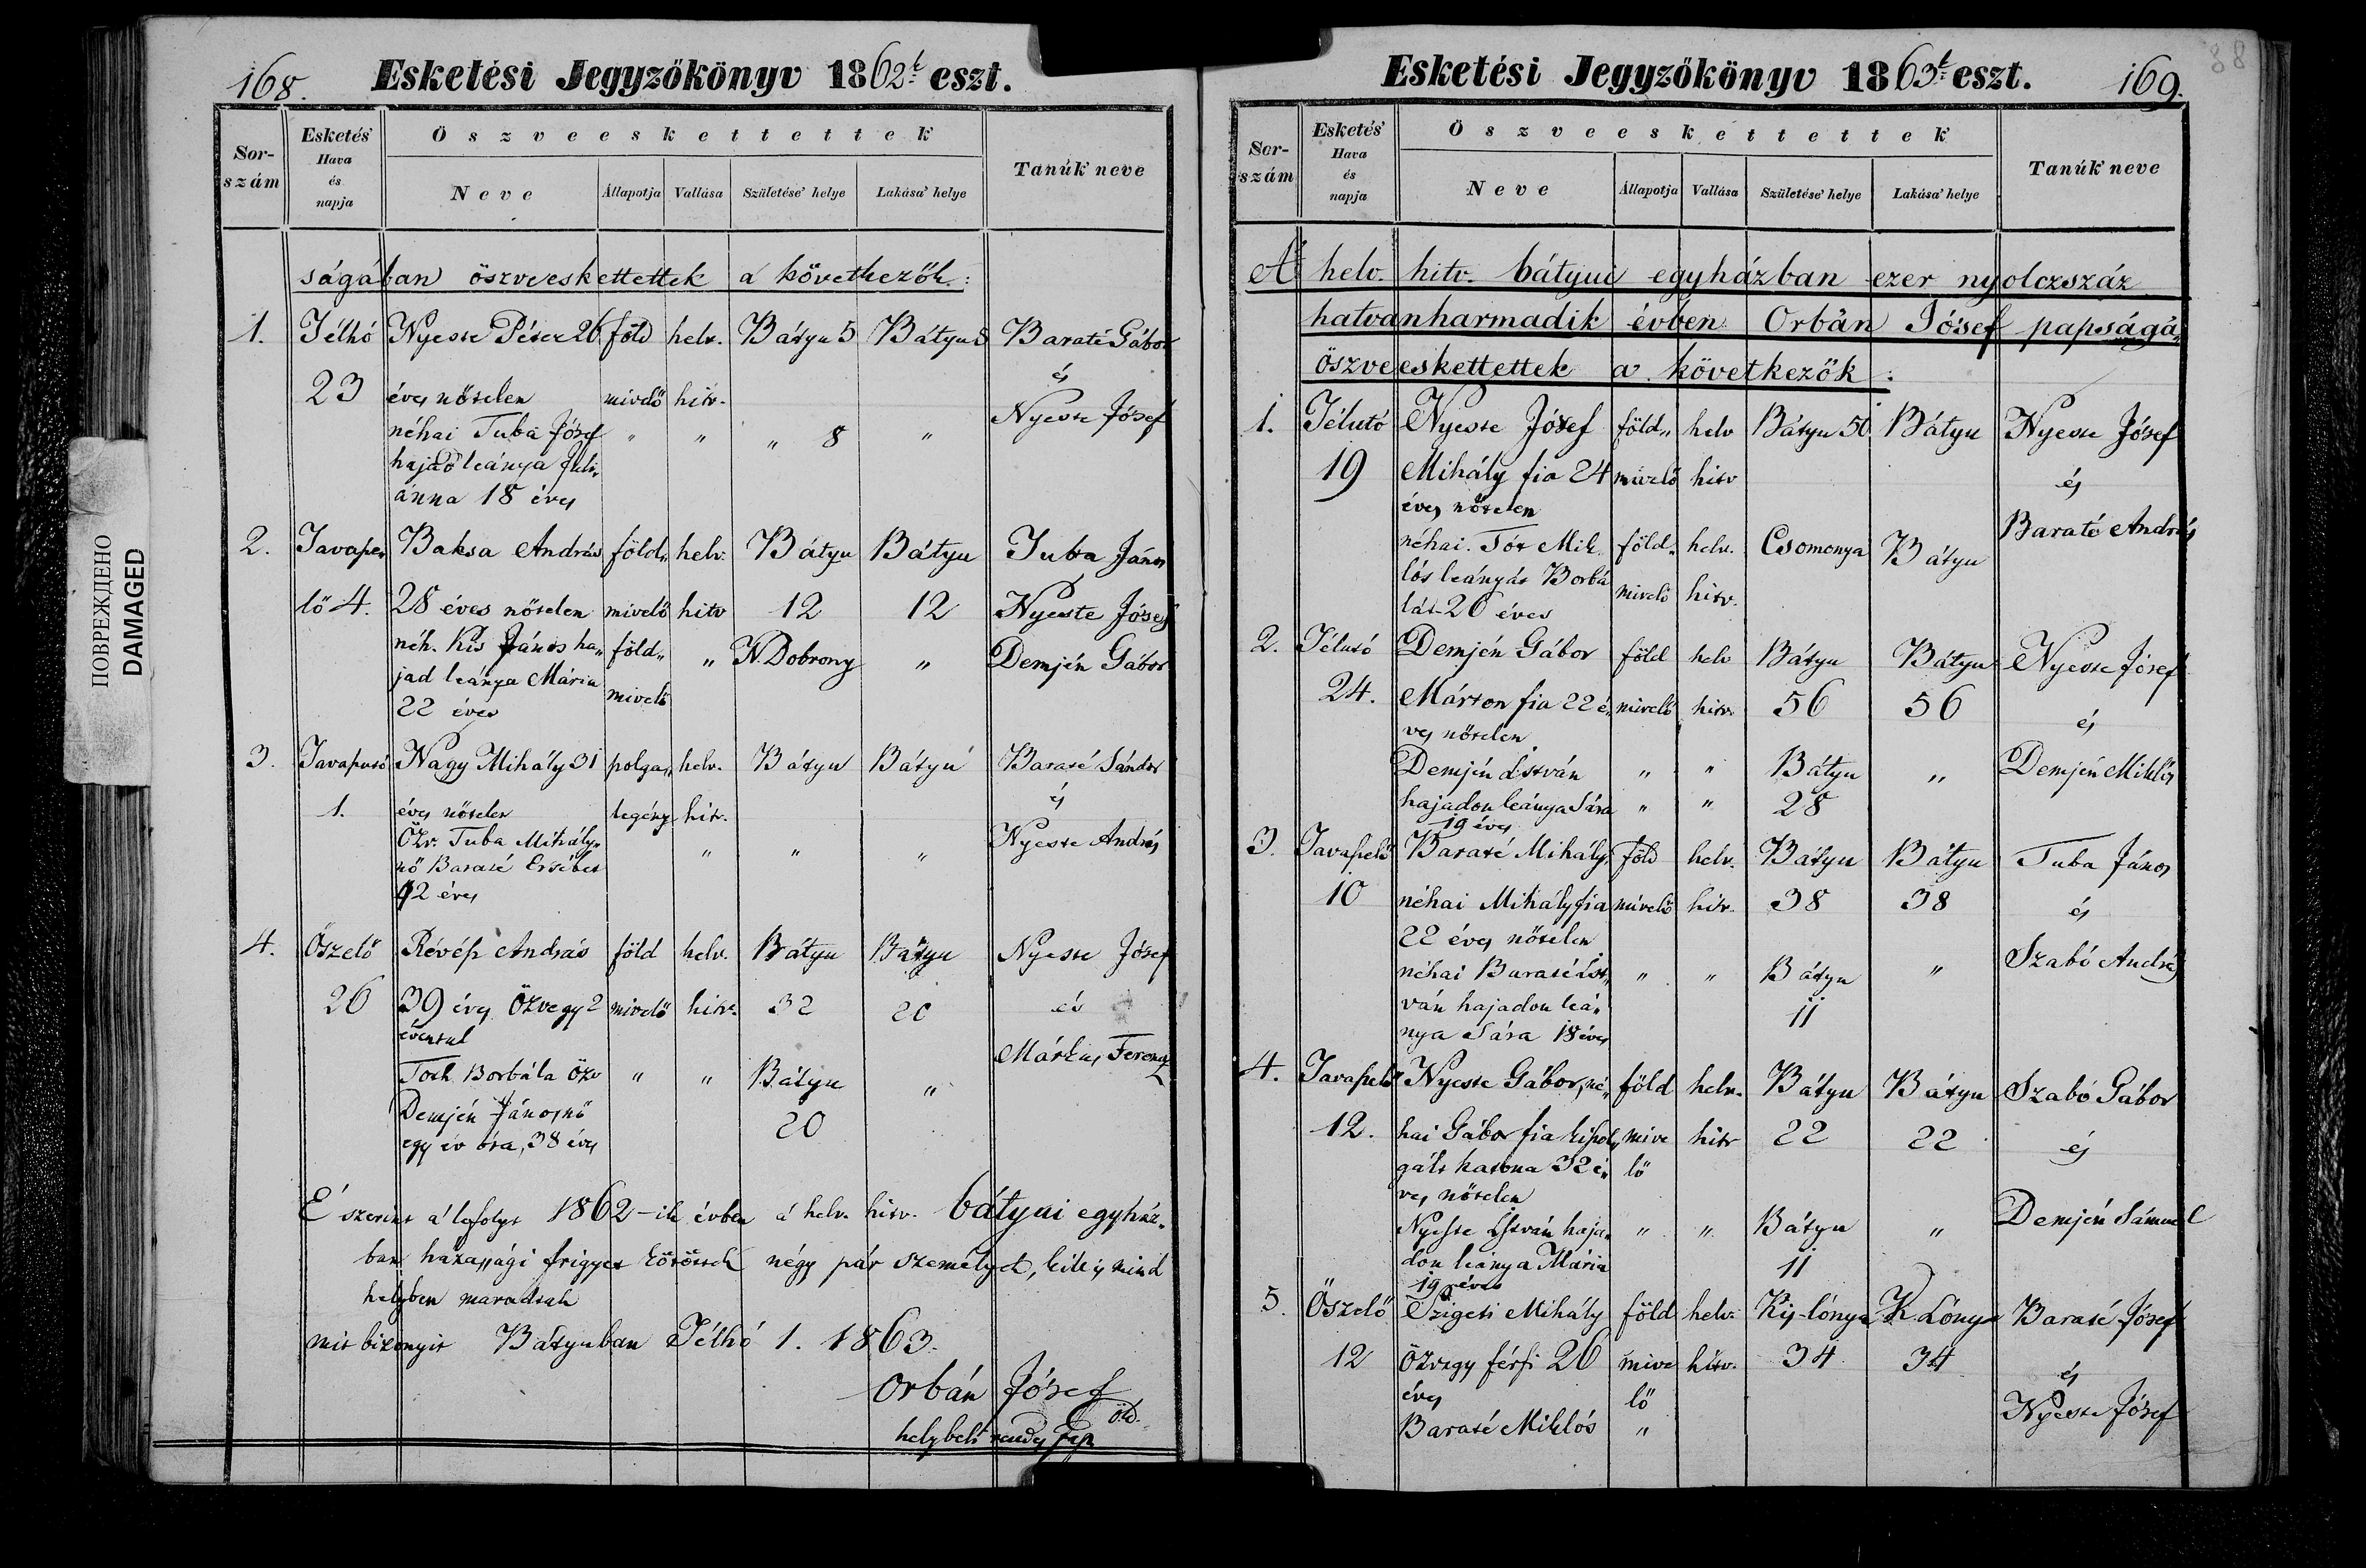 168.
Esketési Jegyzőkönyv 1862t eszt.
Sor-szám
Esketés' Hava és napja
Öszveeskettettek
Neve
Állapotja
Vallása
Születése' helye
Lakása' helye
Tanúk neve
ságában öszveeskettettek a' következők:
1. Télhó Nyeste Péter 26 föld helv. Bátyu 5 Bátyu 5 Baraté Gábor
és
23 éves nőtelen mivelő hitv. Nyeste Jósef
néhai Tuba Jósef " " " 8 "
hajad leánya Juli„
ánna 18 éves
2. Tavape„ Baksa András föld„ helv. Bátyu Bátyu Tuba János
lő 4. 28 éves nőtelen mivelő hitv 12 12 Nyeste Jósef
néh. Kis János ha„ föld„ " N. Dobrony " Demjén Gábor
jad leánya Mária mivelő
22 éves
3. Tavasutó Nagy Mihály 31 polgá„ helv. Bátyu Bátyu Baraté Sándor
és
1. éves nőtelen legény hitv. Nyeste András
Özv. Tuba Mihály„ " " "
nő Baraté Ersébet
42 éves
4. Őszelő Révép András föld helv. Bátyu Bátyu Nyeste Jósef
26 39 éves Özvegy 2 mivelő hitv. 32 20 és
évental Márkus Ferencz
Toth Borbála özv " " Bátyu "
Demjén Jánosnő 20
egy év óta, 38 éves
E' szerint a' lefolyt 1862-ik évben a' helv. hitv. bátyui egyház„
ban házassági frigyet kötöttek négy pár személyek, kik is mind
helyben maradtak
mit bizonyit Bátyuban Télhó 1. 1863.
Orbán Jósef
helybeli rendes pap
ПОВРЕЖДЕНО
DAMAGED
Esketési Jegyzőkönyv 1863t eszt.
169.
88
Sor-szám
Esketés' Hava és napja
Öszveeskettettek
Neve
Állapotja
Vallása
Születése' helye
Lakása' helye
Tanúk neve
A' helv. hitv. bátyui egyházban ezer nyolczszáz
hatvanharmadik évben Orbán Jósef papságá„
öszveeskettettek a' következők:
1. Télutó Nyeste Jósef föld„ helv Bátyu 50 Bátyu Nyeste Jósef
19 Mihály fia 24 mivelő hitv és
éves nőtelen Baraté András
néhai Tót Mik„ föld„ helv. Csomonya Bátyu
lós leányát Borbá mivelő hitv.
lát 20 éves
2. Télutó Demjén Gábor föld helv Bátyu Bátyu Nyeste Jósef
24. Márton fia 22 é„ mivelő hitv. 56 56 és
ves nőtelen
Demjén István " " Bátyu " Demjén Miklós
hajadon leánya Sára " " 28
19 éves
3. Tavapelő Baraté Mihály föld helv. Bátyu Bátyu Tuba János
10 néhai Mihály fia mivelő hitv. 38 38 és
22 éves nőtelen Szabó András
néhai Baraté Ist„ " " Bátyu "
ván hajadon leá„ 11
nya Sára 18 éves
4. Tavapelő Nyeste Gábor, né„ föld helv. Bátyu Bátyu Szabó Gábor
12. hai Gábor fia kiszol„ mive hitv 22 22 és
gált katona 32 é„ lő
ves nőtelen
Nyeste István haja„ " " Bátyu " Demjén Sámuel
don leánya Mária 11
19 éves
5. Őszelő Szigeti Mihály föld helv. Kis-lónya K. Lónya Baraté Jósef
12 özvegy férfi 26 mive hitv. 34 34 és
éves lő Nyeste Jósef
Baraté Miklós "